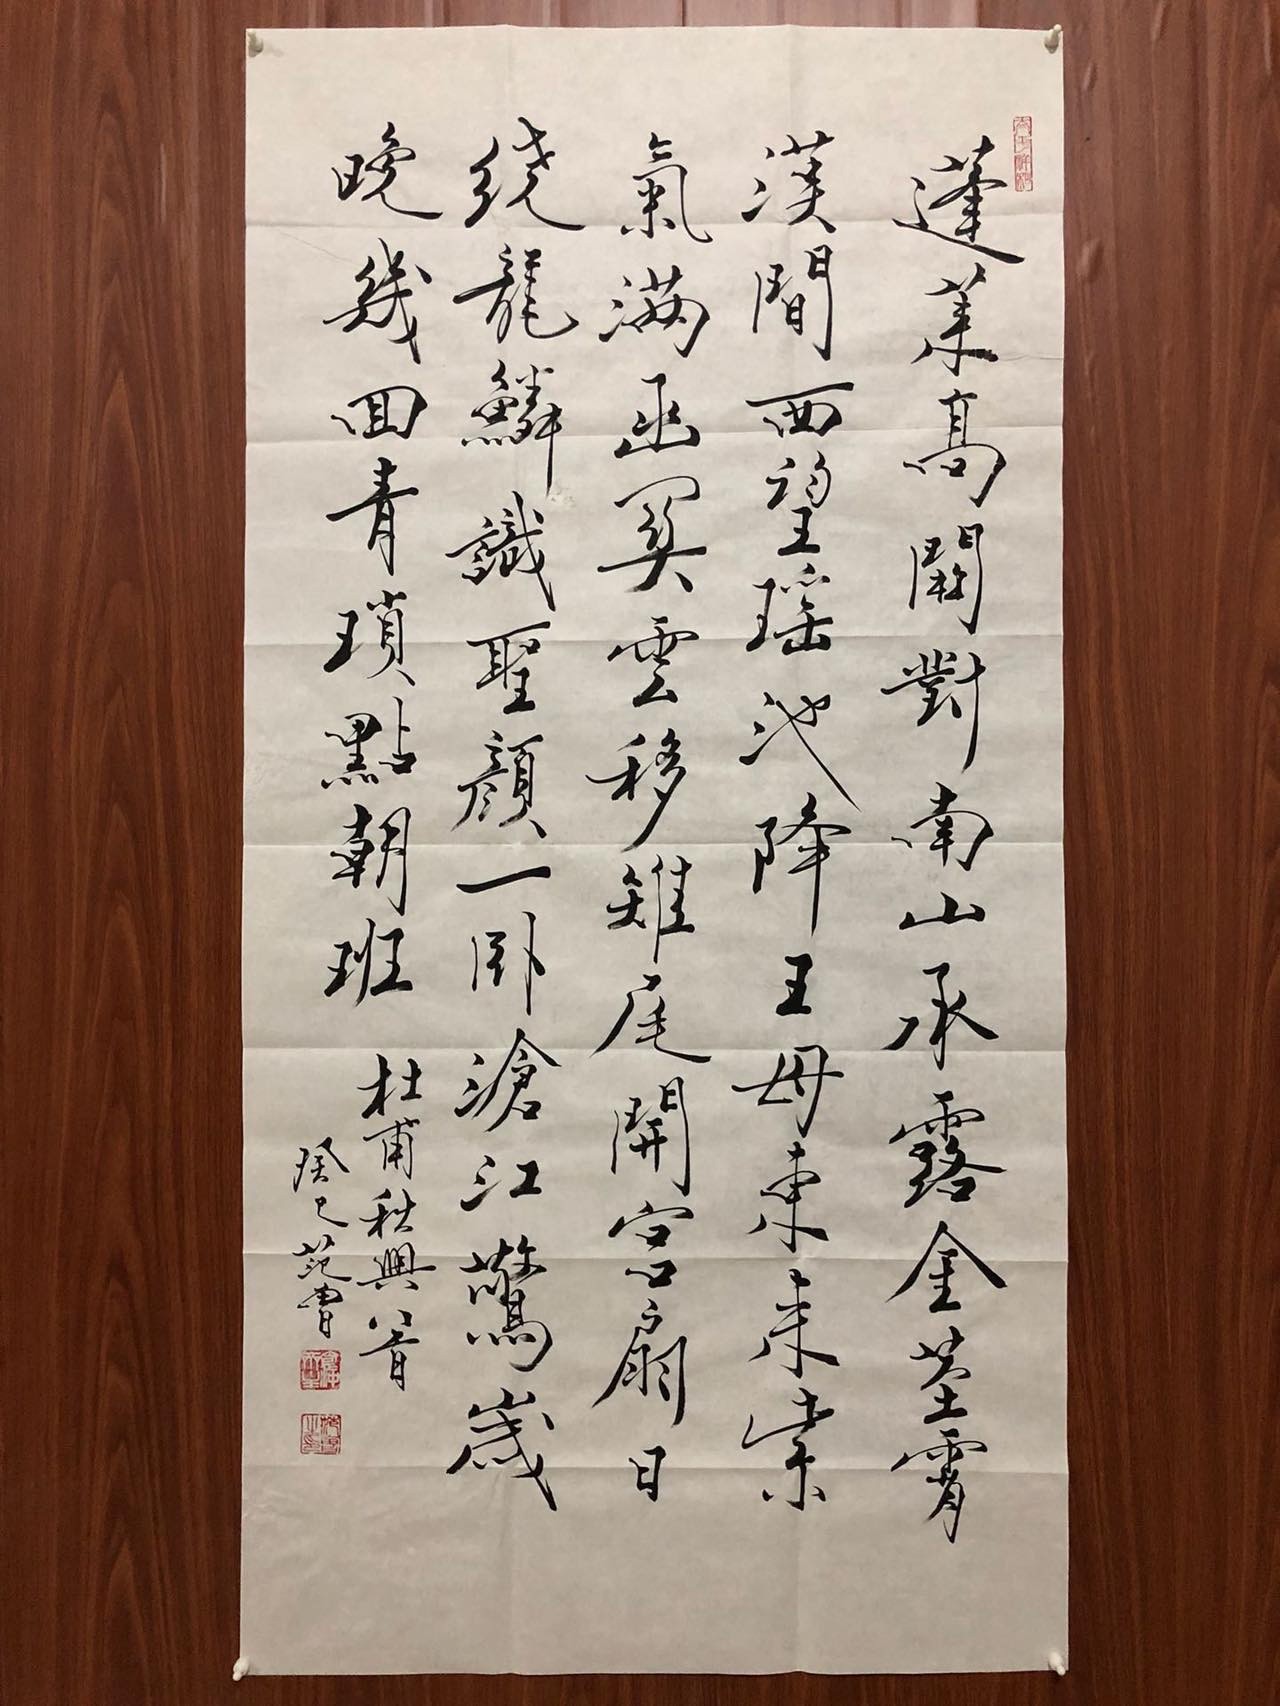 蓬莱高闕對南山承露金莖霄
漢間西望瑶池降王母東来紫
氣滿函関雲移雉尾開宮扇日
绕龍鱗識聖顔一卧滄江驚歲
晚幾回青瑣點朝班
杜甫秋興八首
癸巳范曾